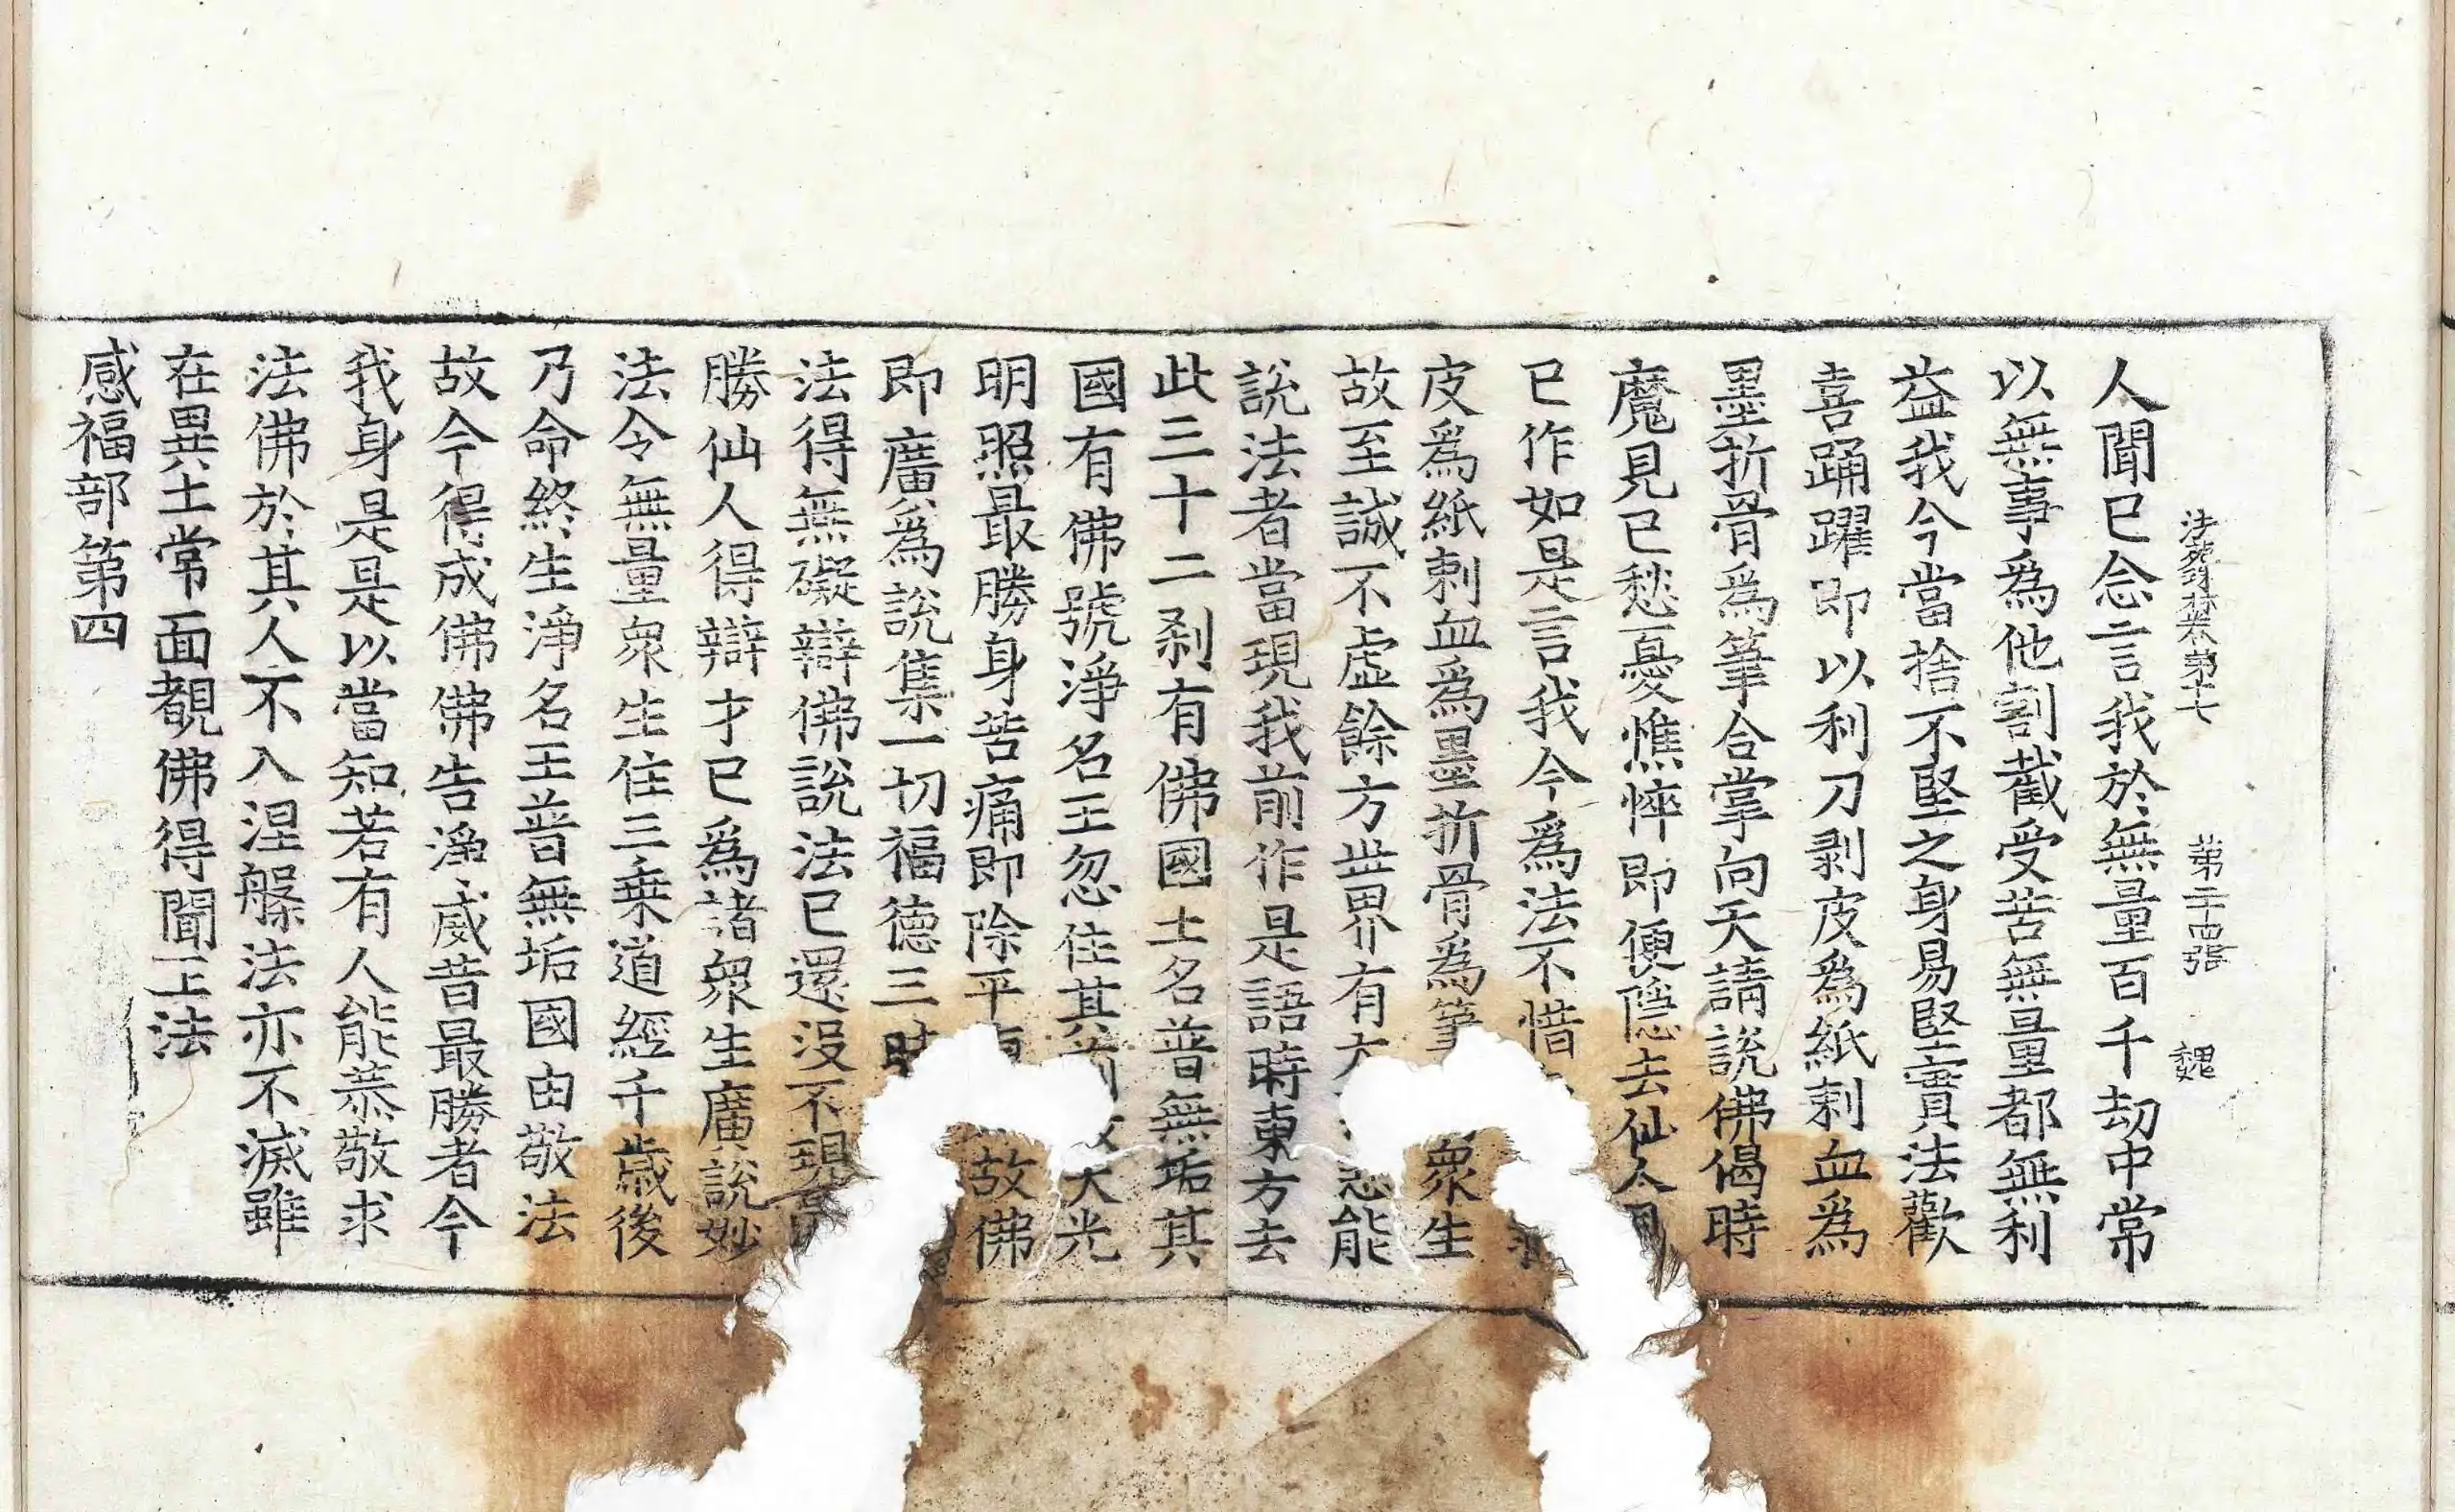 法苑珠林卷第十七　第二十四張　魏
人聞已念言我於無量百千劫中常
以無事為他割截受苦無量都無利
益我今當捨不堅之身易堅實法歡
喜踊躍即以利刀剥皮為紙刺血為
墨折骨為筆合掌向天請說佛偈時
魔見已愁憂憔悴即便隱去仙人
已作如是言我今爲法不惜
皮爲紙刺血爲墨折骨為筆衆生
故至誠不虛餘方世界有大悲能
說法者當現我前作是語時東方去
此三十二刹有佛國土名普無垢其
國有佛號淨名王忽住其前放大光
明照最勝身苦痛即除平故佛
即廣為說集一切福德三
法得無礙辯佛說法已還沒不現
勝仙人得辯才已為諸衆生廣說妙
法令無量衆生住三乗道經千歲後
乃命終生淨名王普無垢國由敬法
故今得成佛佛告淨威昔最勝者今
我身是是以當知若有人能恭敬求
法佛於其人不入涅槃法亦不滅雖
在異土常面覩佛得聞正法
感福部第四